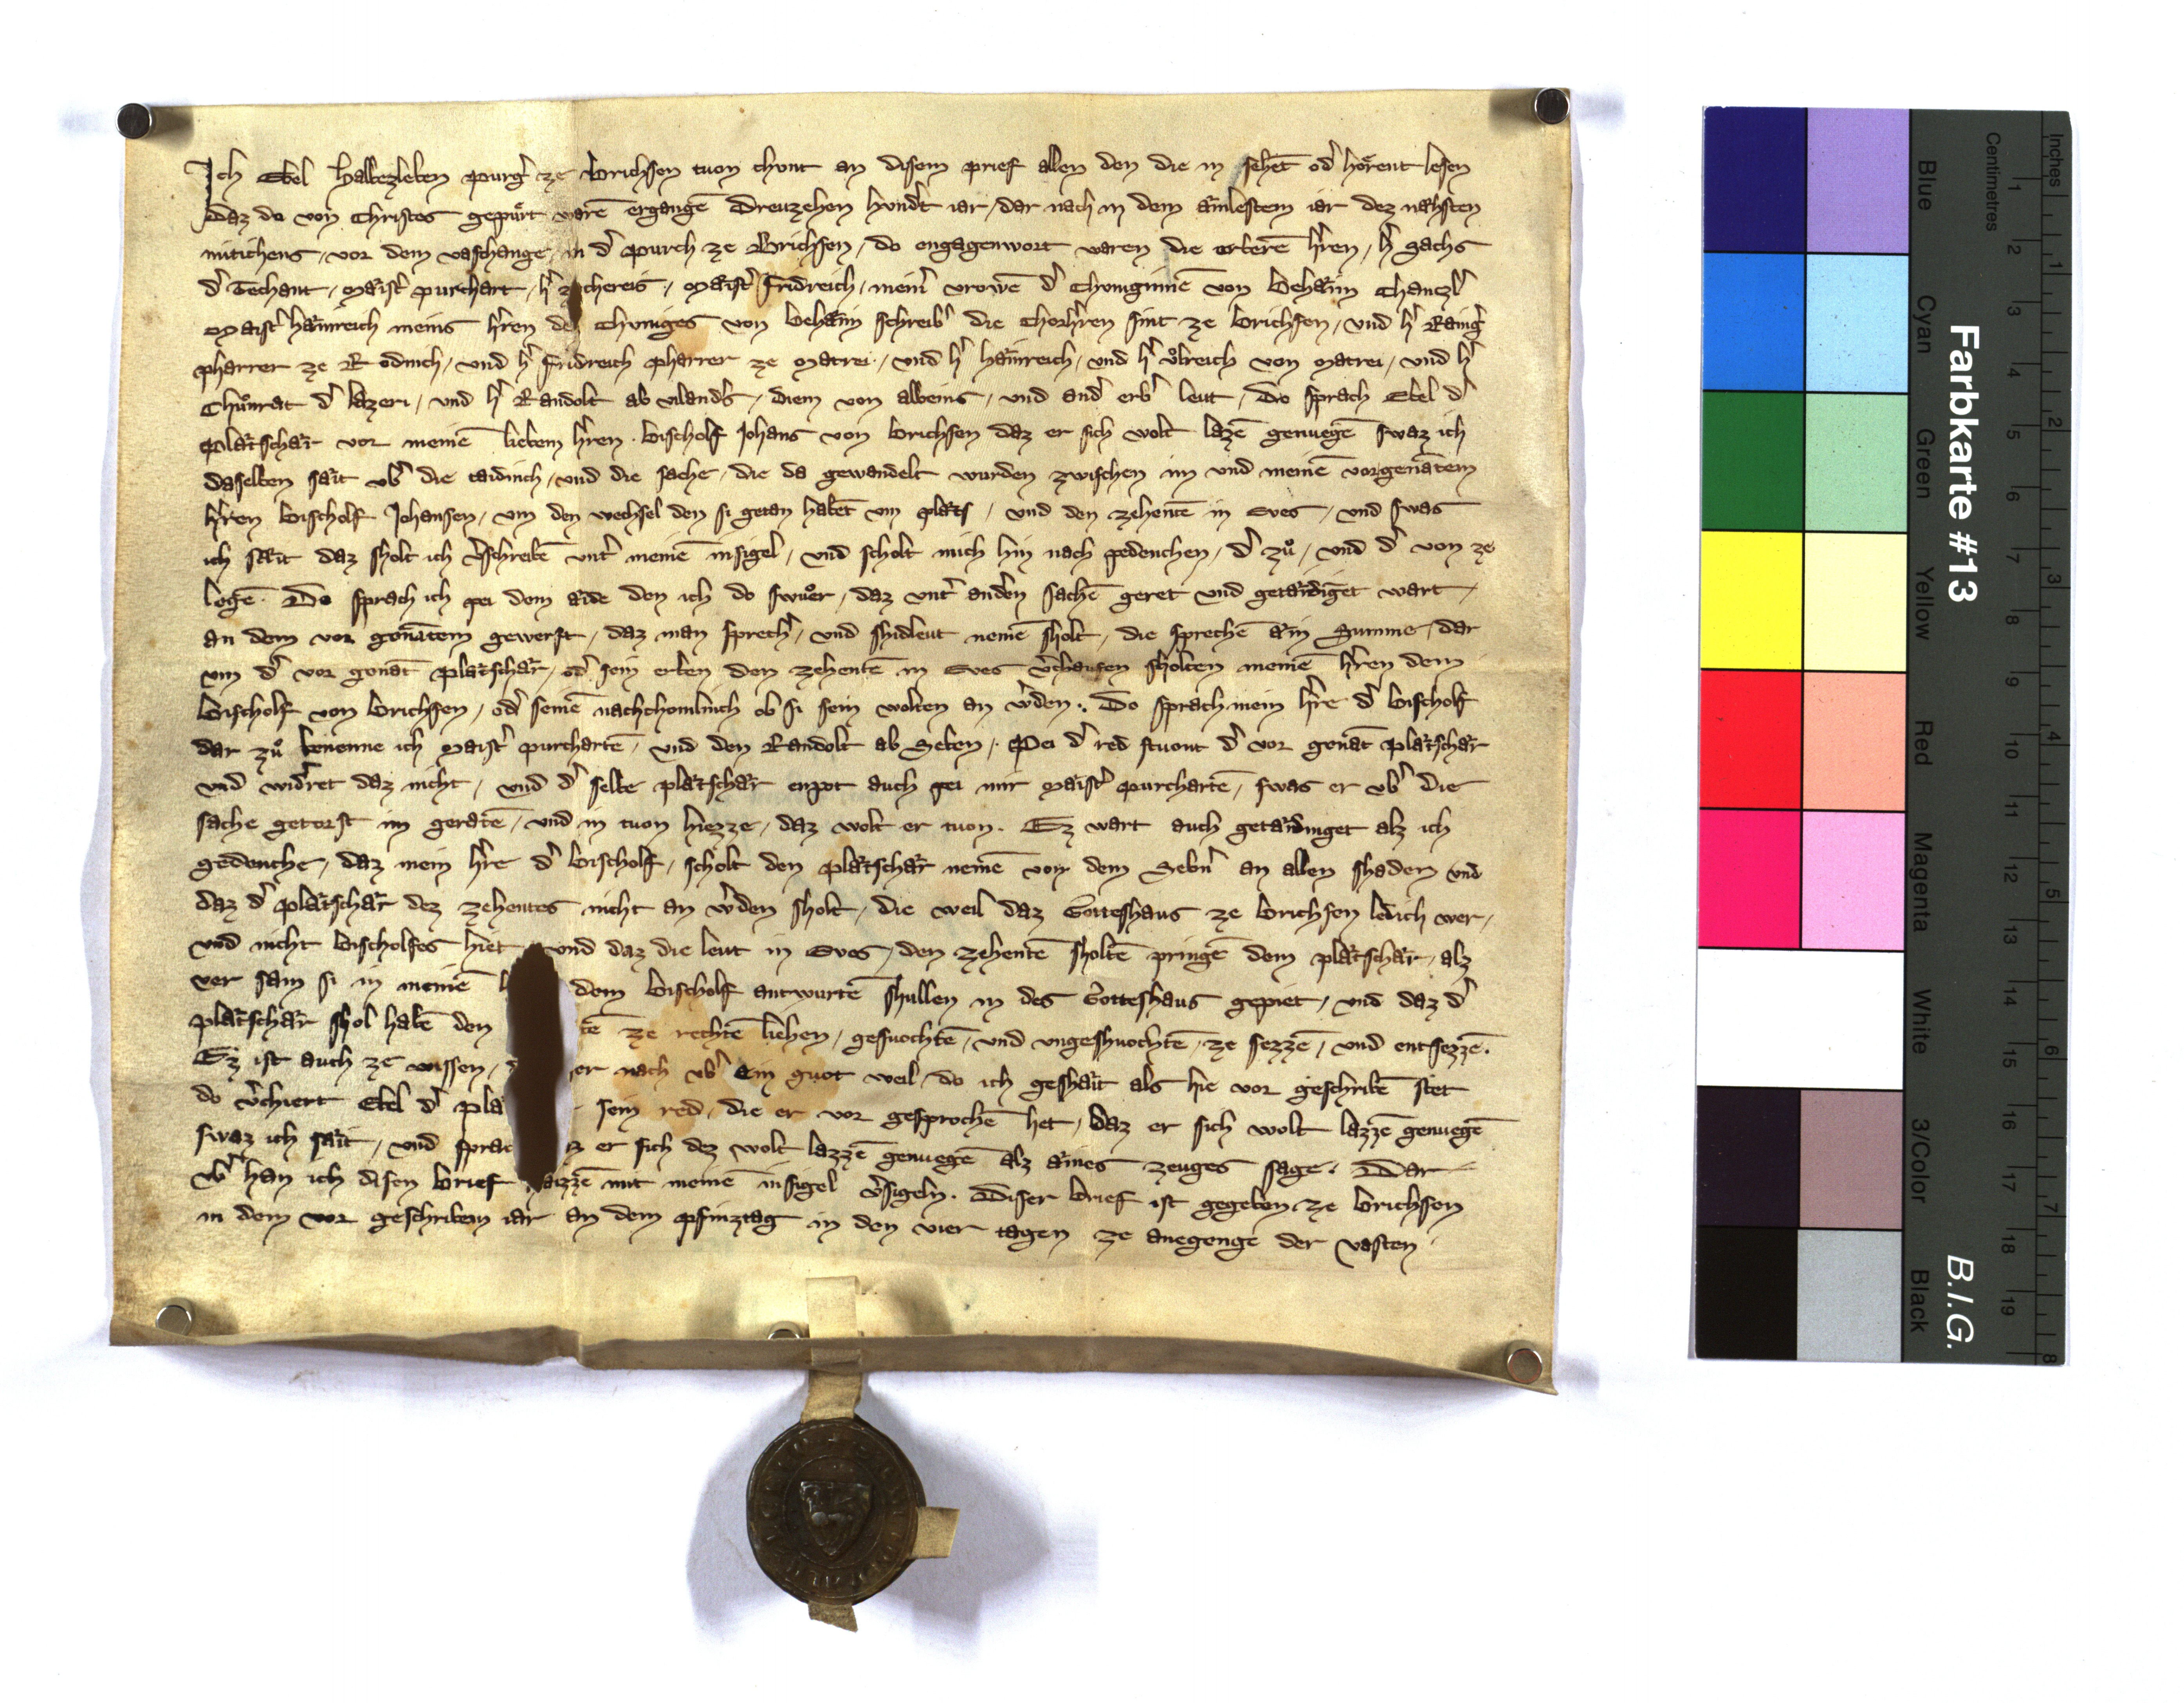 Ich Ebel Halbezleben purgͬ ze Brichsen tuon chunt an disem prief allen den die in sehēt odͬ hörent lesen
daz do von Christes gepürt warē ergangē Dreuzehen hvndͬt iar, dar nach in dem ainlestem iar dez nahsten
mitichens, vor dem vaschange, in dͬ purch ze Brichsen, do engagenwort waren die erberē hͬren, hͬ
dͬ Techant, Maistͬ purchart, hͬ Maistͬ fridreich, meinͬ vrowē dͬ Chuniginnē von Behaim Chanczlͬ
Maistͬ hainreich meins hͬren des Chuniges von Behaim schreibͬ die Chorhͬren sint ze Brichsen, vnd hͬ Raingͬ
pharrer ze Rodinch, vnd hͬ fridreich pharrer ze Matrei, vnd hͬ hainreich, vnd hͬ vͦlreich von Matrei, vnd hͬ
Chuͦnrat dͬ lazeri, vnd hͬ Randolt ab vilandͬs, diem von albeins, vnd andͬ erbͬ leut, Do sprach Ebel dͬ
Platschar vor meinē liebem hͬren Bischolf Johans von Brichsen daz er sich wolt lazē genuegē swaz ich
daselben sait vbͬ die taidinch, vnd die sache, die da gewandelt wurden zwischen im vnd meinē vorgenātem
hͬren Bischolf Johansen, vm den wechsel den si getan habēt vm plats, vnd den zehentē in Eves, vnd swas
ich sait daz sholt ich vͬschreibē vntͬ meinē insigel, vnd scholt mich hin nach pedenchen, dͬ zuͦ, vnd dͬ von ze
legē. Do sprach ich pei dem aide den ich do swuͦr, daz vntͬ andͬen sachē geret vnd getaidigēt wart,
an dem vor genātem gewerft, daz man sprechͬ, vnd shidleut nemē sholt, die sprechē ain Summe, dar
vm dͬ vor genāt platschar, odͬ sein erben den zehentē in Eves vͬchaufen sholten meinē hͬren dem
Bischolf von Brichsen, odͬ seinē nachchomlinch ob si sein wolten an wͬden. Do sprach mein hͬre dͬ Bischolf
dar zuͦ benenne ich Maistͬ purchartē, vnd den Randolt ab Seben. Pei dͬ red stuont dͬ vor genāt platschar
vnd widͬret daz nicht, vnd dͬ selbe platschar enpot auch pei mir Maistͬ purchartē, swas er vbͬ die
sache getorst im geratē, vnd in tuon hiezze, daz wolt er tuon. Ez wart auch getaidinget alz ich
gedenche, daz mein hͬre dͬ Bischolf, scholt den platschar nemē von dem Sebnͬ an allen shaden vnd
daz dͬ platschar dez zehentes nicht an wͬden sholt, die weil daz Gotteshaus ze Brichsen ledich wer,
vnd nicht Bischolfes hiet vnd daz die leut in Eves, den zehentē sholtē pringē dem platschar, alz
ver sam si in meinē dem Bischolf antwurtē shullen in des Gotteshaus gepiet, vnd daz dͬ
platschar shol habē den tē ze rechtē liehen, gesuochtē, vnd vngeshuochtē, ze sezzē, vnd entsezzē.
Ez ist auch ze wissen, er nach vbͬ ein guot weil, do ich geshait als hie vor geschribē stet
do vͬchiert Ebel dͬ pla sein red, die er vor gesprochē het, daz er sich wolt lazzē genuegē
swaz ich sait, vnd sprac z er sich dez wolt lazzē genuegē alz aines zeuges sage. Dar
vbͬ han ich disen brief aizzē mit meinē insigel vͬsigeln. Diser brief ist gegeben ze Brichsen
in dem vor geschribem iar an dem pfinztag in den vier tagen ze anegenge der vasten.
Farbkarte #13
B.I.G.
Inches
1 2 3 4 5 6 7 8
Centimetres
1 2 3 4 5 6 7 8 9 10 11 12 13 14 15 16 17 18 19
Blue Cyan Green Yellow Red Magenta White 3/Color Black